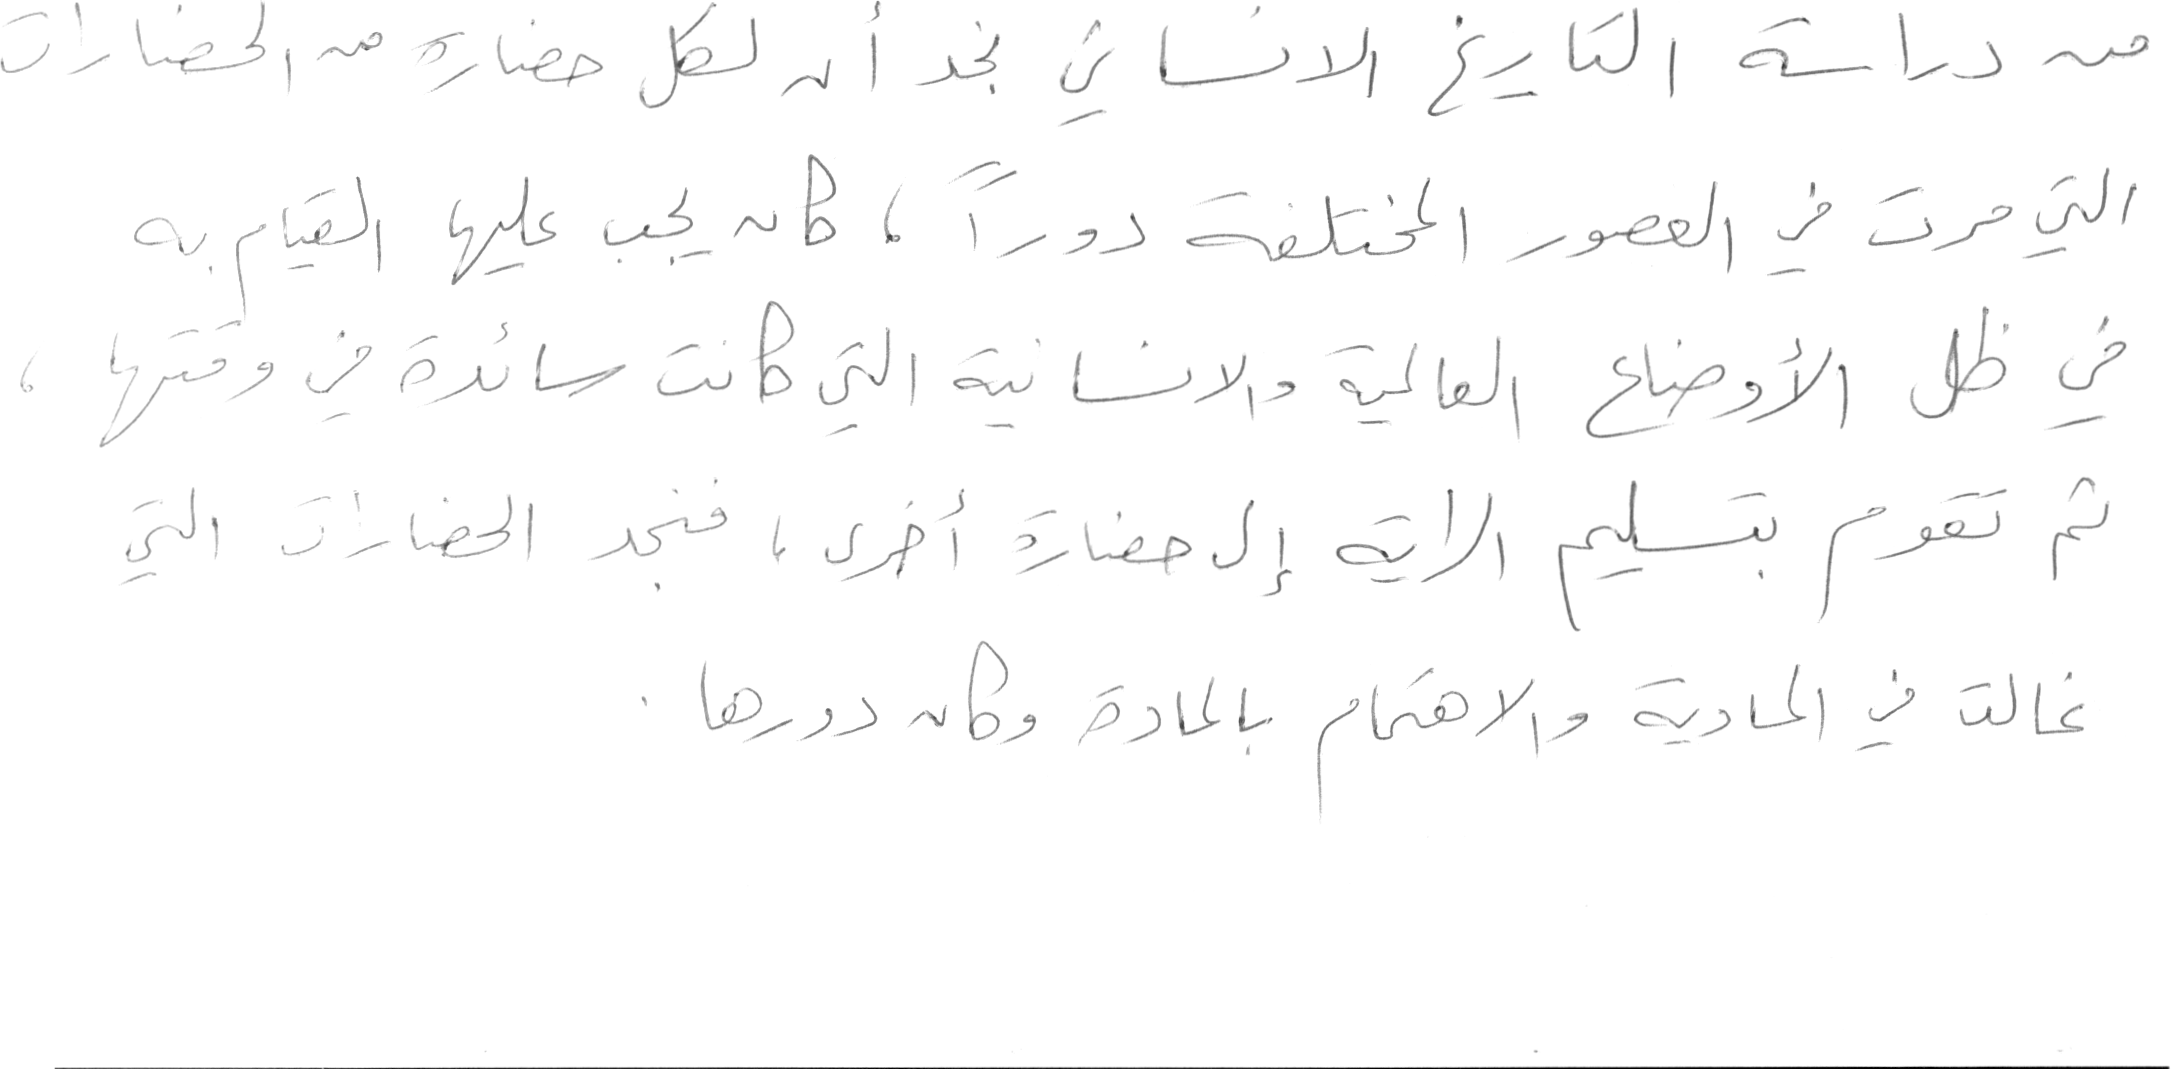 من دراسة التاريخ الانساني نجد أن لكل حضارة من الحضارات
التي مرت في العصور المختلفة دوراً ، كان يجب عليها القيام به
في ظل الأوضاع العالمية والانسانية التي كانت سائدة في وقتها ،
ثم تقوم بتسليم الراية إلى حضارة أخرى ، فنجد الحضارات التي
غالت في المادية والاهتمام بالمادة وكان دورها .